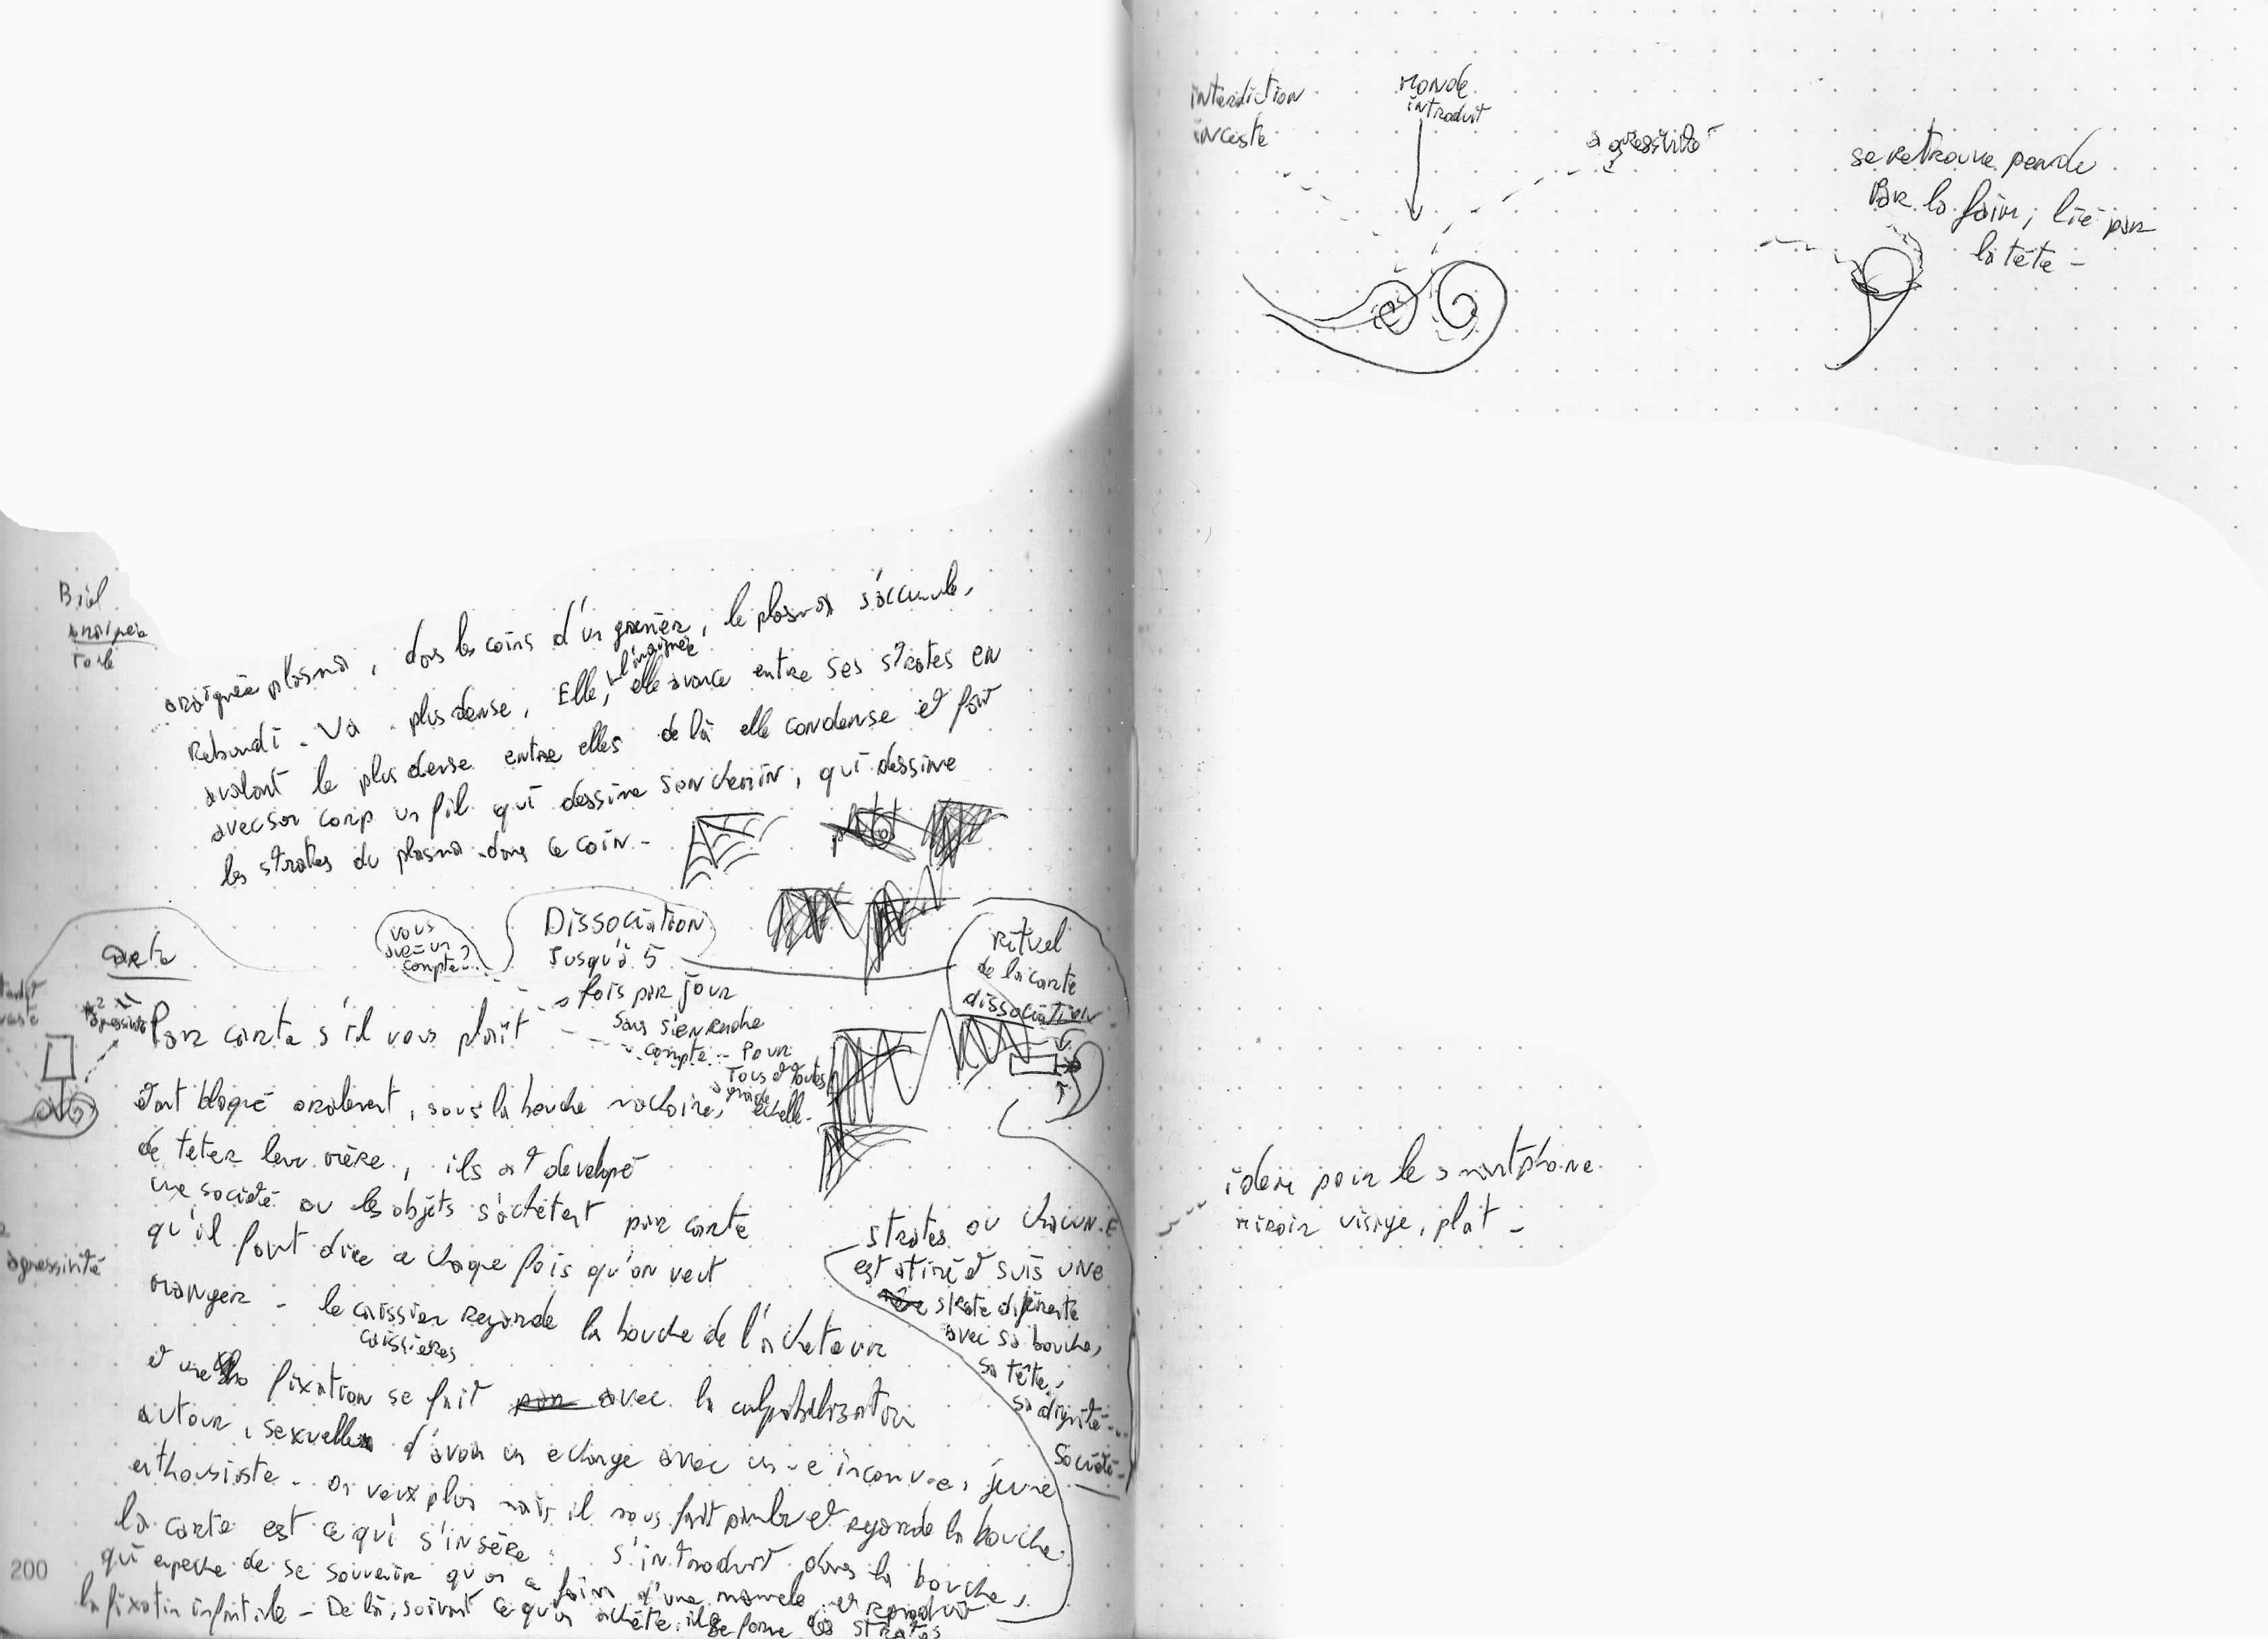 interdiction
inceste
Monde
introduit
agressivité
se retrouve pendu
Par la faim, lié par
la tête -
araignée
Toile
araignée plasma, dans les coins d'un grenier, le plasma s'accumule,
Rebondi. Va plus dense, Elle, l'araignée elle avance entre ses strates en
avalant le plus dense entre elles de là elle condense et fait
avec son corp un fil qui dessine son chemin, qui dessine
les strates du plasma dans ce coin -
carte
vous
avez un
compte?
Dissociation
Jusqu'à 5
fois par jour
sans s'en rendre
compte... Pour
Tous et toutes
à grande
échelle.
Rituel
de la carte
dissociation
Par carte s'il vous plaît
étant bloqué oralement, sous la bouche machoire,
de téter leur mère, ils ont developé
une société ou les objets s'achètent par carte
qu'il faut dire a chaque fois qu'on veut
manger - le caissier regarde la bouche de l'acheteur
caissieres
et une fixation se fait par avec la culpabilisation
autour, sexuelle d'avoir un echange avec un-e inconu-e, jeune
enthousiaste - on veux plus mais il nous fait parler et regarde la bouche.
la carte est ce qui s'insère s'introduit dans la bouche,
qui empeche de se souvenir qu'on a faim d'une mamele, en reproduit
la fixation infantile - De là, suivant ce qu'on achète, il se forme des strates
agressivité
strates ou chacun.e
est attiré et suis une
strate différente
avec sa bouche,
sa tête,
sa dignité...
Société -
idem pour le smartphone
miroir visage, plat -
200